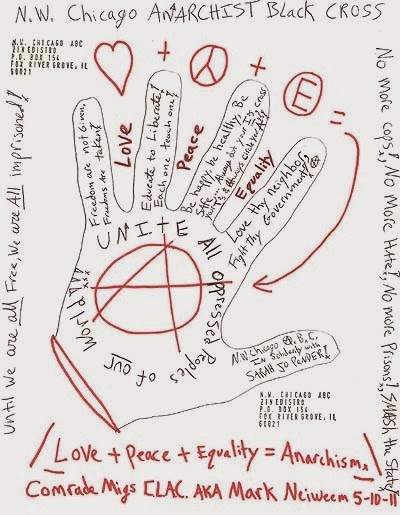 N.W. Chicago ANARCHIST Black CROSS
N.W. CHICAGO ABC
ZINEDISTRO
P.O. BOX 154
FOX RIVER GROVE, IL
60021
+
+
E
=
Love
Peace
Equality
Freedom are not Given,
Freedoms are taken!
Educate to Liberate!
Each one teach one!
Be happy, be healthy, Be
Safe... Always
Love thy neighbor
Fight thy Government!
UNITE All oppressed Peoples of our World
N.W. Chicago A.B.C.
In Solidarity with
SARAH SO PENDER!
N.W. CHICAGO ABC
ZINEDISTRO
P.O. BOX 154
FOX RIVER GROVE, IL
60021
Until we are all Free, We are All imprisoned!
No more cops!, No More Hate!, No more Prisons!, SMASH the State!
Love + Peace + Equality = Anarchism
Comrade Migs CLAC. AKA Mark Neiweem 5-10-11